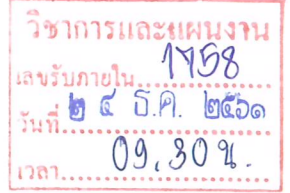 วิชาการและแผนงาน
เลขรับภายใน 1758
วันที่ ๒ ๔ ธ.ค. ๒๕๖๑
เวลา 09,30 น.